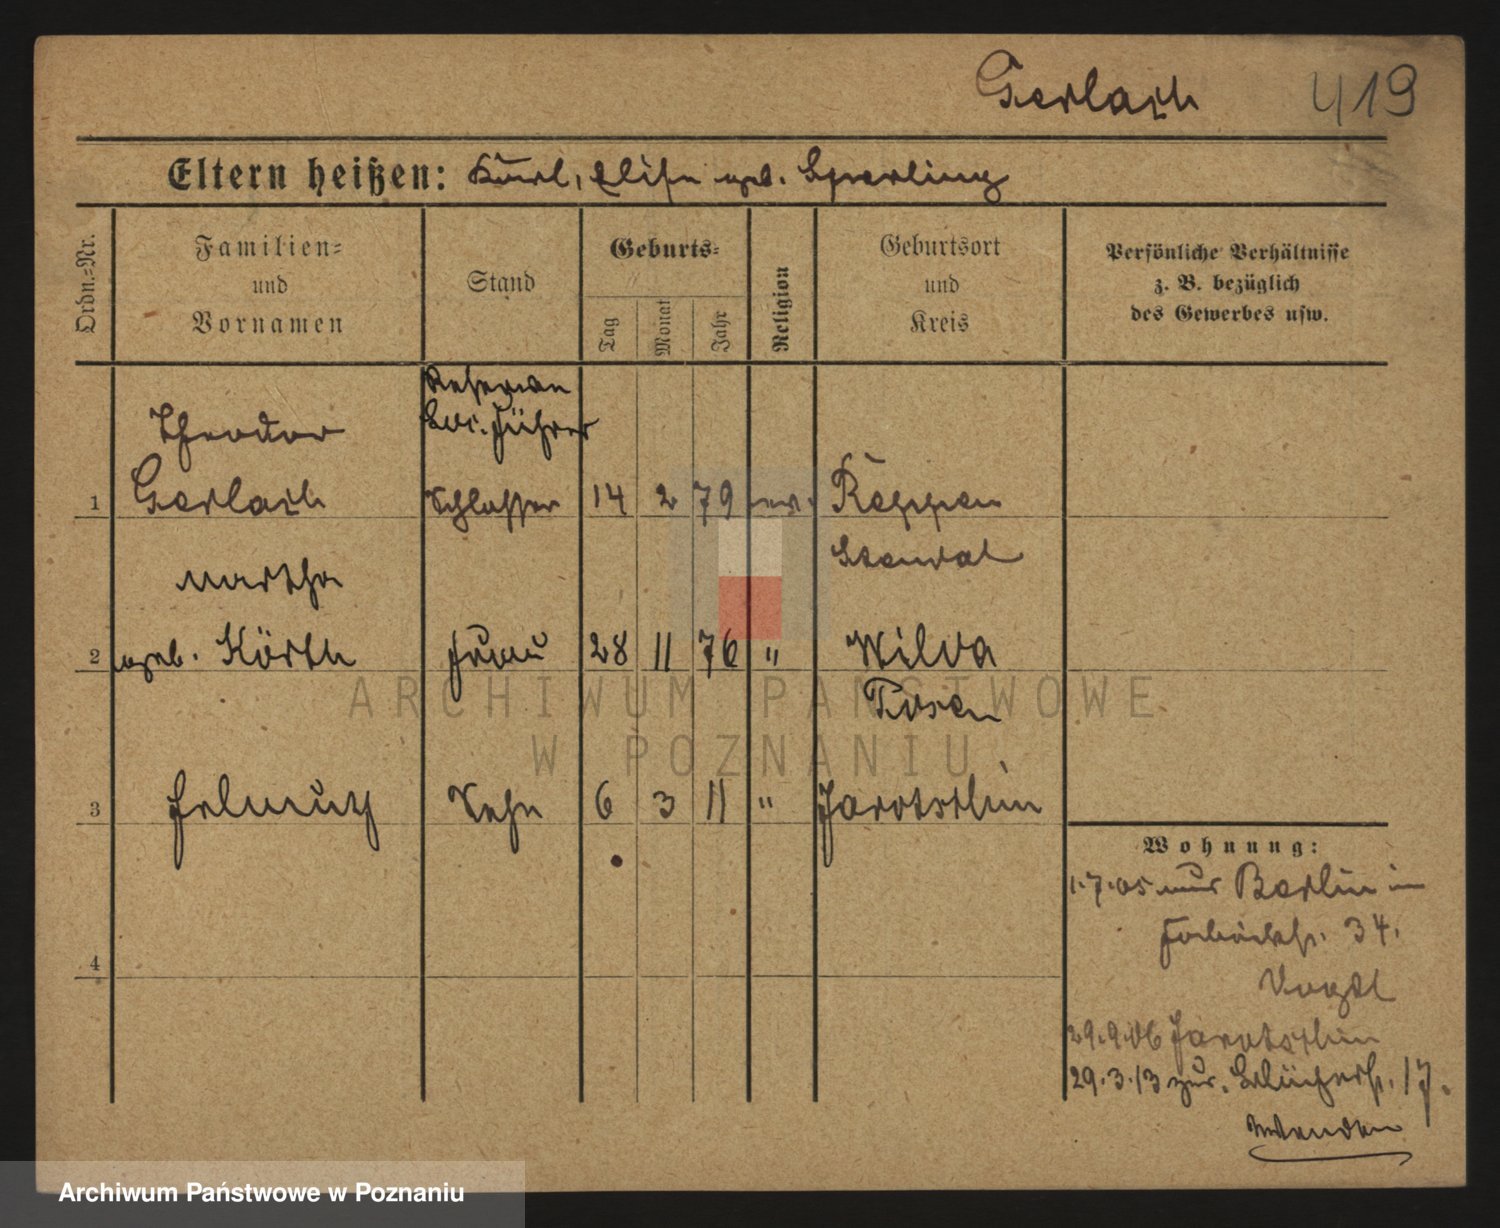 Gerlach 419
Eltern heißen: Karl, Elise geb. Sperling
Ordn.=Nr.
Familien=
und
Vornamen
Stand
Geburts=
Tag
Monat
Jahr
Religion
Geburtsort
und
Kreis
Persönliche Verhältnisse
z. B. bezüglich
des Gewerbes usw.
Theodor
Führer
1 Gerlach Schlosser 14 2 79 ev.
Stendal
Martha
2 geb. Körth Frau 28 11 76 " Wilda
Posen
3 Helmuth Sohn 6 3 11 " Jarotschin
Wohnung:
1.7.05 Berlin
34.
Vogtl
4
29.9.06 Jarotschin
29.3.13 zur. Blücherstr. 17.
Wenden
ARCHIWUM PAŃSTWOWE
W POZNANIU
Archiwum Państwowe w Poznaniu